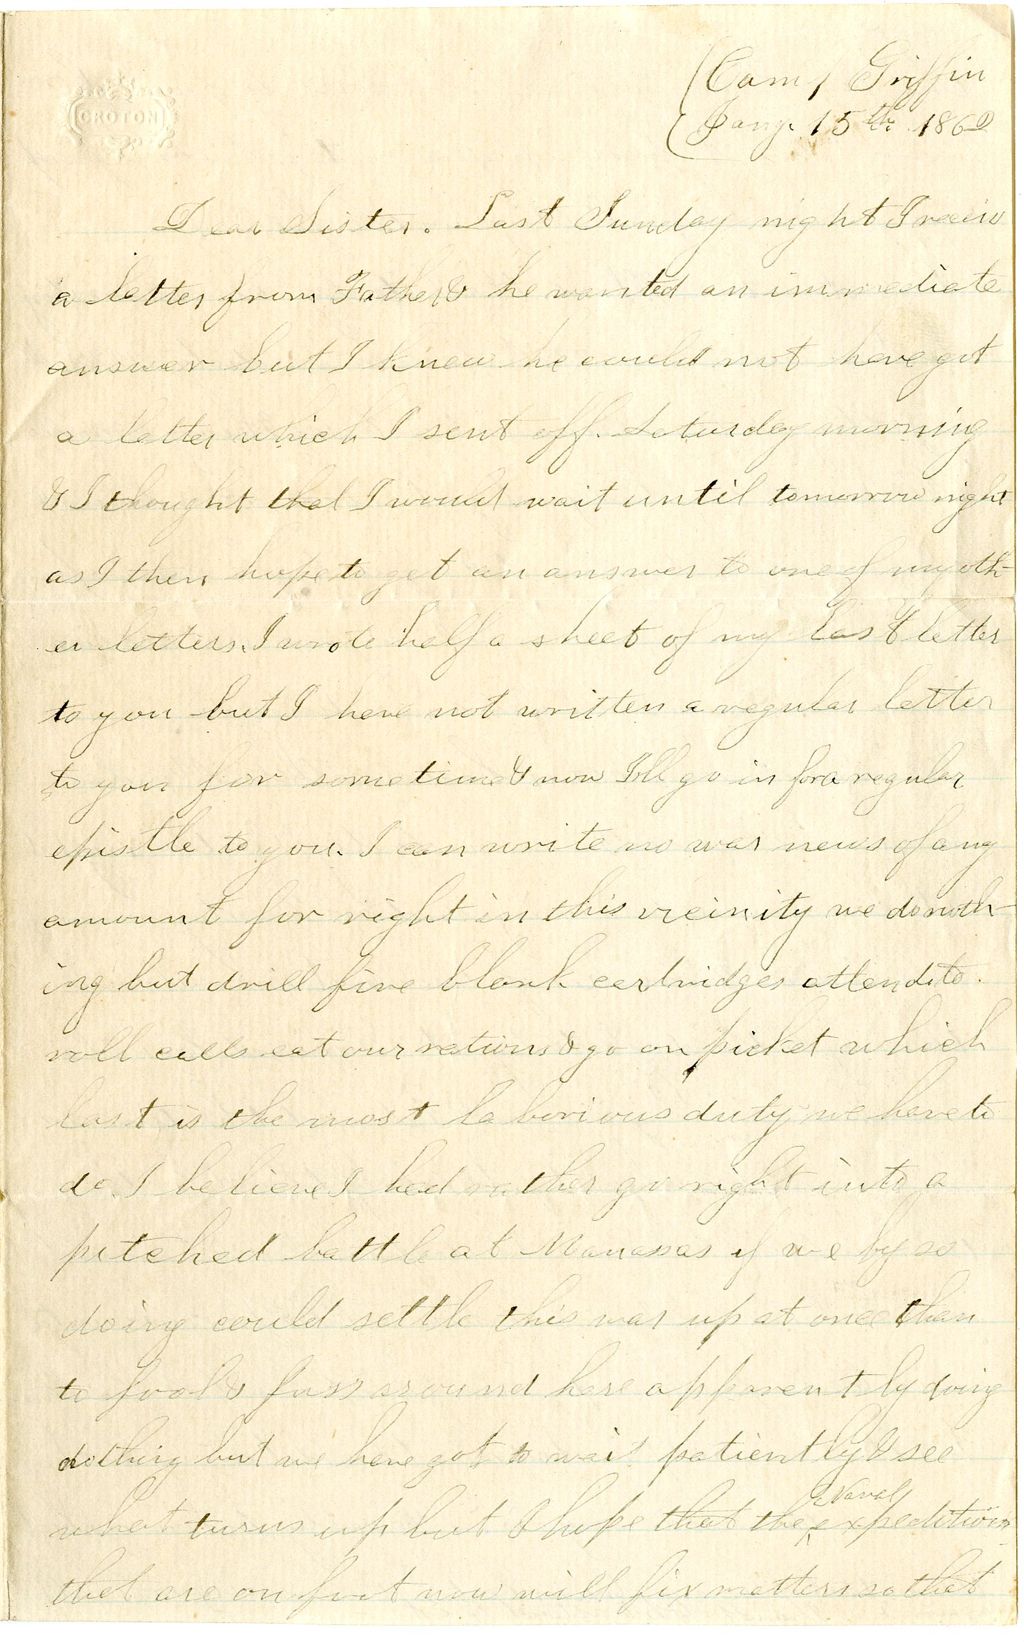 CROTON
Camp Griffin
Jany. 15th 1862
Dear Sister. Last Sunday night I reciv
a letter from Father & he wanted an immediate
answer but I knew he could not have got
a letter which I sent off. Saturday morning
& I thought that I would wait until tomorrow night
as I then hope to get an answer to one of my oth-
er letters. I wrote half a sheet of my last letter
to you but I have not written a regular letter
to you for sometime & now I'll go in for a regular
epistle to you. I can write no war news of any
amount for right in this vicinity we do noth-
ing but drill fire blank cartridges attend to.
roll calls eat our rations & go on picket which
last is the most laborious duty we have to
do. I believe I had rather go right into a
pitched battle at Manassas if we by so
doing could settle this war up at once than
to fool & fuss around here apparently doing
nothing but we have got to wait patiently & see
what turns up but I hope that the ^Naval expeditions
that are on foot now will fix matters so that